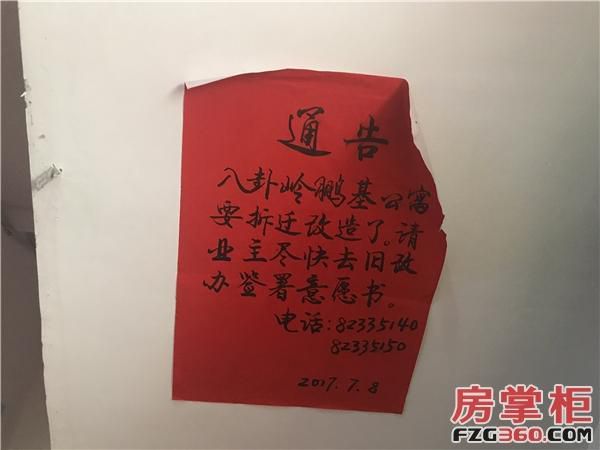 通告
八卦岭鹏基公寓
要拆迁改造了。请
业主尽快去旧改
办签署意愿书。
电话:82335140
82335150
2017.7.8
房掌柜
FZG360.COM